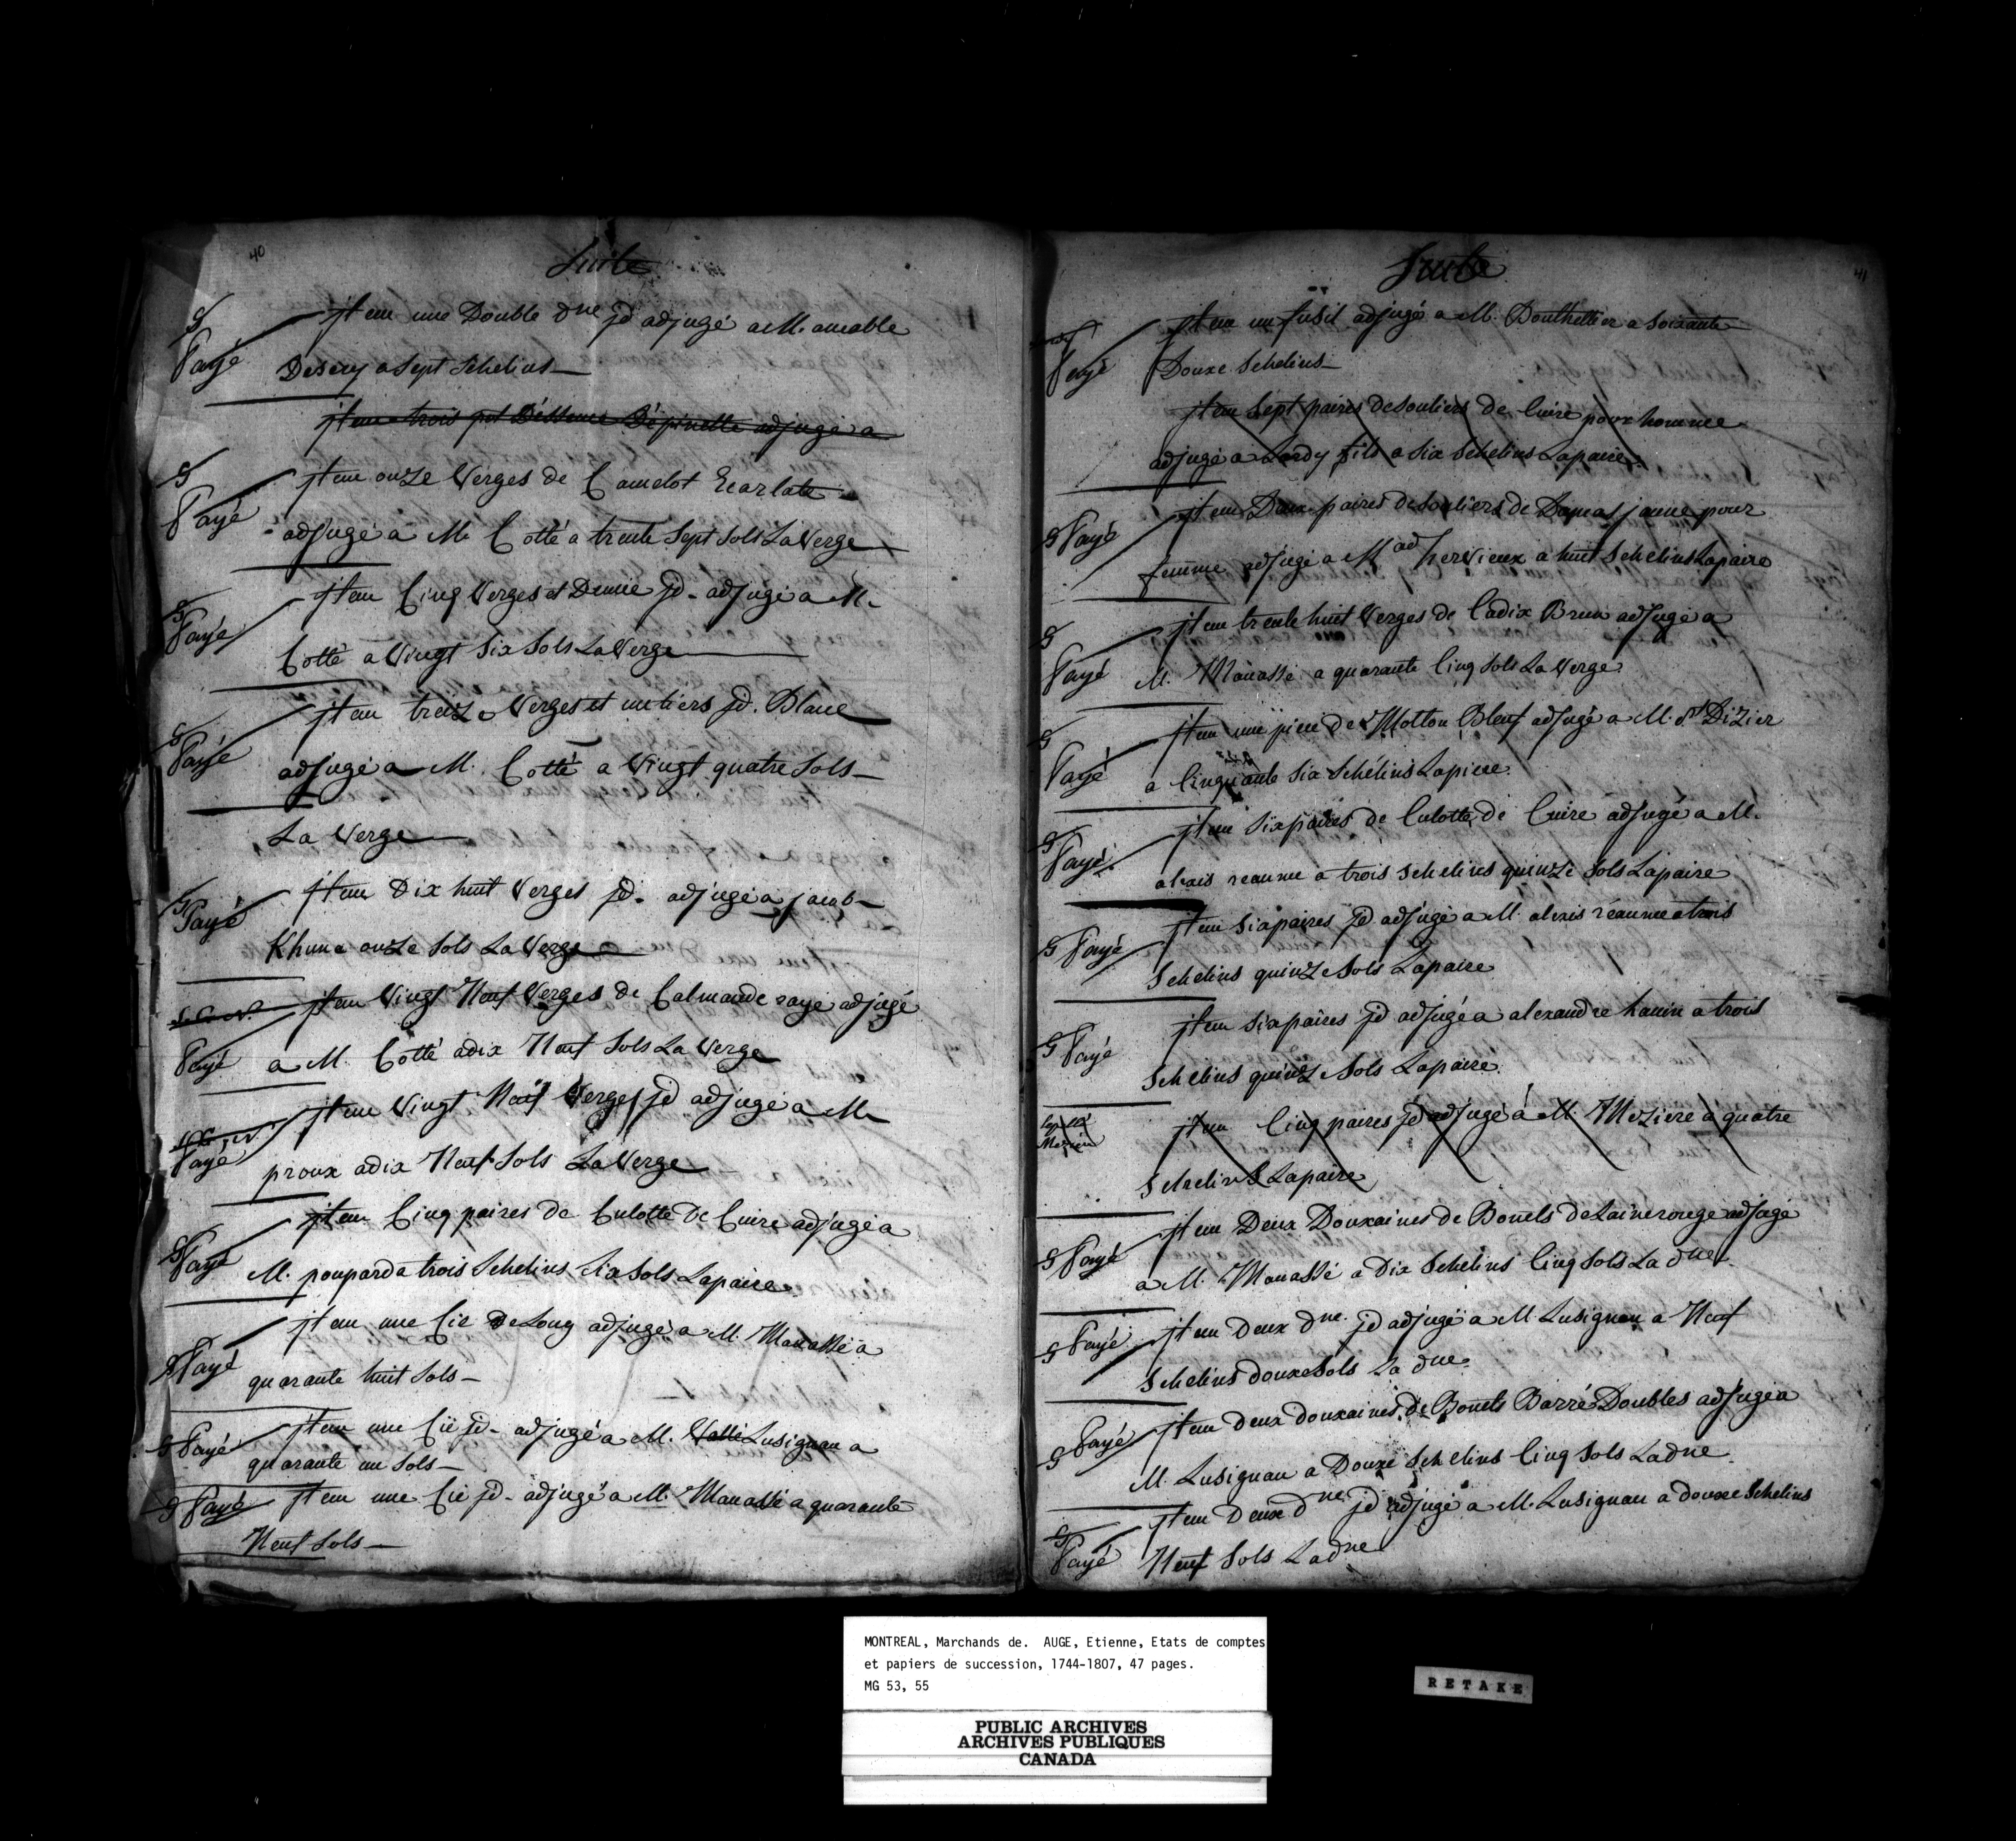 40
Suite
Payé
jtem une Double dne jd adjugé a M. amable
Desery a Sept Schelins
jtem trois pot Déssence Dépinette adjugé a
Payé
jtem onze Verges de Camelot Ecarlate
adjugé a M. Cotté a trente Sept Sols La Verge
Payé
jtem Cinq Verges et Demie jd. adjugé a M.
Cotté a Vingt Six Sols La Verge
Payé
jtem treize Verges et un tiers jd. Blanc
adjugé a M. Cotté a Vingt quatre Sols
La Verge
Payé
jtem Dix huit Verges jd. adjugé a jacob
Khun a onze Sols La Verge
jtem Vingt Neuf Verges de Calmande rayé adjugé
Payé
a M. Cotté a dix Neuf Sols La Verge
jtem Vingt Neuf Verges jd adjugé a M.
Payé
proux a dix Neuf Sols La Verge
jtem Cinq paires de Culotte de Cuire adjugé a
Payé
M. poupard a trois Schelins Six Sols La paire
jtem une Cie De Long adjugé a M. Manassé a
Payé
quarante huit Sols
Payé
jtem une Cie jd. adjugé a M. Vallé Lusignan a
quarante un Sols
Payé
jtem une Cie jd. adjugé a M. Manassé a quarante
Neuf Sols
41
Suite
jtem un fusil adjugé a M. Bouthellier a Soixante
Payé
Douze Schelins
jtem Sept paires de Souliers de Cuire pour homme
adjugé a Lardy fils a Six Schelins La paire
Payé
jtem Deux paires de Souliers de Damas jaune pour
femme adjugé a Mad hervieux a huit Schelins La paire
jtem trente huit Verges de Cadix Brun adjugé a
Payé
M. Manassé a quarante Cinq Sols La Verge
jtem une piece de Molton Bleuf adjugé a M. St Dizier
Payé
a Cinquante Six Schelins La piece
jtem Six paires de Culotte de Cuire adjugé a M.
Payé
alexis reaume a trois Schelins quinze Sols La paire
jtem Six paires jd adjugé a M. alexis réaume a trois
Payé
Schelins quinze Sols La paire
jtem Six paires jd adjugé a alexandre hanin a trois
Payé
Schelins quinze Sols La paire
jtem Cinq paires jd adjugé a M. Meziere a quatre
Schelins La paire
jtem Deux Douzaines de Bonets de Laine rouge adjugé
Payé
a M. Manassé a Dix Schelins Cinq Sols La dne
Payé
jtem Deux dne. jd adjugé a M. Lusignan a Neuf
Schelins douze Sols La dne
Payé
jtem deux douzaines de Bonets Barré Doubles adjugé a
M. Lusignan a Douze Schelins Cinq Sols La dne
jtem Deux dne jd adjugé a M. Lusignan a douze Schelins
Payé
Neuf Sols La dne
MONTREAL, Marchands de. AUGE, Etienne, Etats de comptes
et papiers de succession, 1744-1807, 47 pages.
MG 53, 55
RETAKE
PUBLIC ARCHIVES
ARCHIVES PUBLIQUES
CANADA